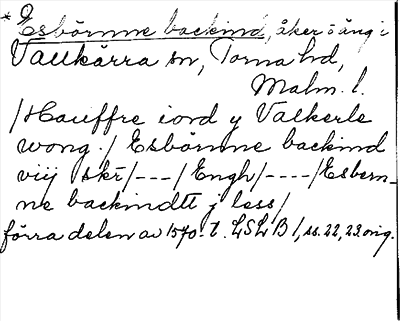 * Esbörnne backind, åker o äng i
Vallkärra sn, Torna hd,
Malm. l.
/Hauffre iord y Valkerle
wong./ Esbörnne backind
viij skr/---/Engh/----/Esbern-
ne backindtt j less/
förra delen av 1570-t. LSLB 1, ss. 22, 23 orig.